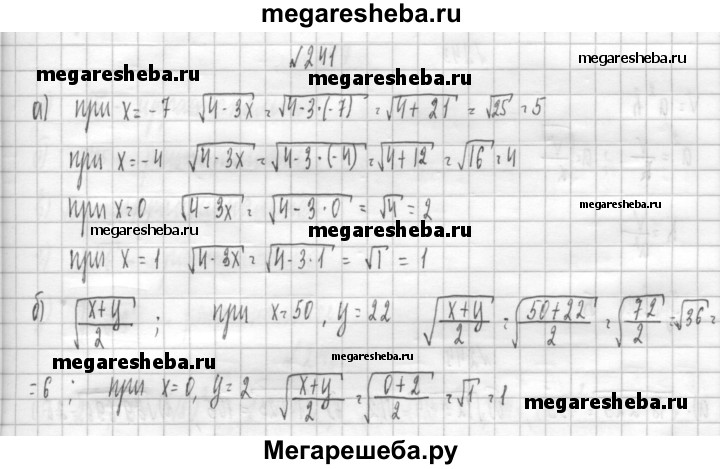 megaresheba.ru
№241
megaresheba.ru
megaresheba.ru
а) при x = -7 √(4-3x) = √(4-3·(-7)) = √(4+21) = √25 = 5
при x = -4 √(4-3x) = √(4-3·(-4)) = √(4+12) = √16 = 4
при x = 0 √(4-3x) = √(4-3·0) = √4 = 2
megaresheba.ru
megaresheba.ru
megaresheba.ru
при x = 1 √(4-3x) = √(4-3·1) = √1 = 1
б) √((x+y)/2) ; при x = 50, y = 22 √((x+y)/2) = √((50+22)/2) = √(72/2) = √36 =
megaresheba.ru
megaresheba.ru
= 6 ; при x = 0, y = 2 √((x+y)/2) = √((0+2)/2) = √1 = 1
megaresheba.ru
Мегарешеба.ру